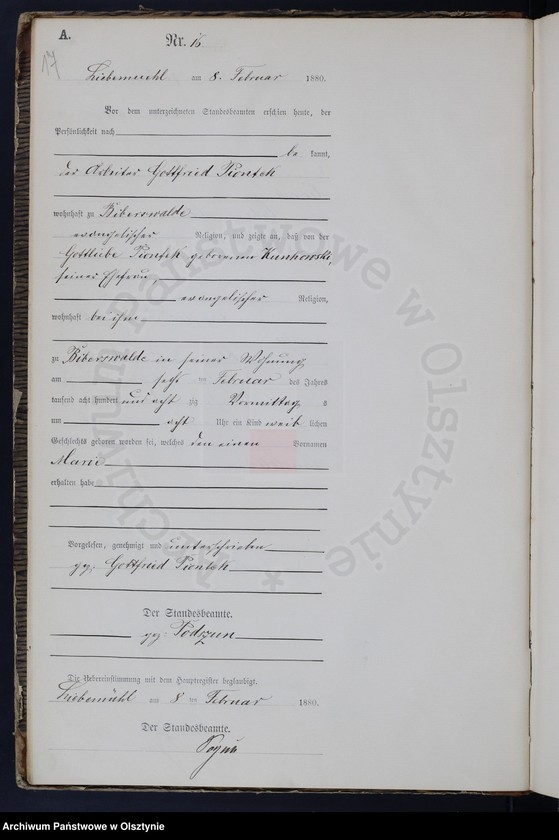 A.
Nr. 16.
17
Liebemuehl am 8. Februar 1880.
Vor dem unterzeichneten Standesbeamten erschien heute, der
Persönlichkeit nach
be kannt,
der Arbeiter Gottfried Piontek
wohnhaft zu Biberswalde
evangelischer Religion, und zeigte an, daß von der
Gottliebe Piontek geborenen Kunkowski,
seiner Ehefrau
evangelischer Religion,
wohnhaft bei ihm
zu Biberswalde in seiner Wohnung
am sechs ten Februar des Jahres
tausend acht hundert und acht zig Vormittag s
um acht Uhr ein Kind weib lichen
Geschlechts geboren worden sei, welches den einen Vornamen
Marie
erhalten habe
Vorgelesen, genehmigt und unterschrieben
gez. Gottfried Piontek
Der Standesbeamte.
gez. Podszun
Die Uebereinstimmung mit dem Hauptregister beglaubigt.
Liebemühl am 8 ten Februar 1880.
Der Standesbeamte.
Archiwum Państwowe w Olsztynie *
Archiwum Państwowe w Olsztynie